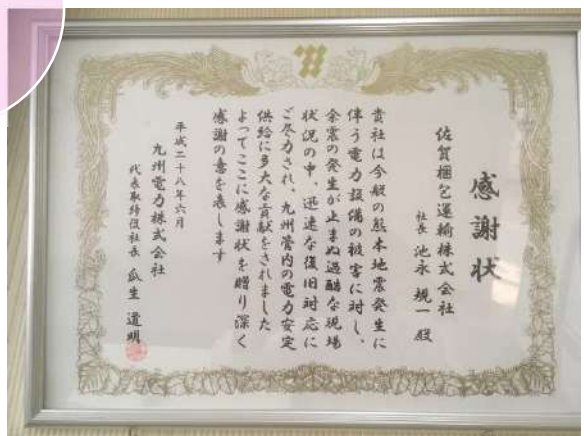 感謝状
佐賀梱包運輸株式会社
社長 池永 規一 殿
貴社は今般の熊本地震発生に
伴う電力設備の被害に対し、
余震の発生が止まぬ過酷な現場
状況の中、迅速な復旧対応に
ご尽力され、九州管内の電力安定
供給に多大な貢献をされました
よってここに感謝状を贈り深く
感謝の意を表します
平成二十八年六月
九州電力株式会社
代表取締役社長 瓜生 道明